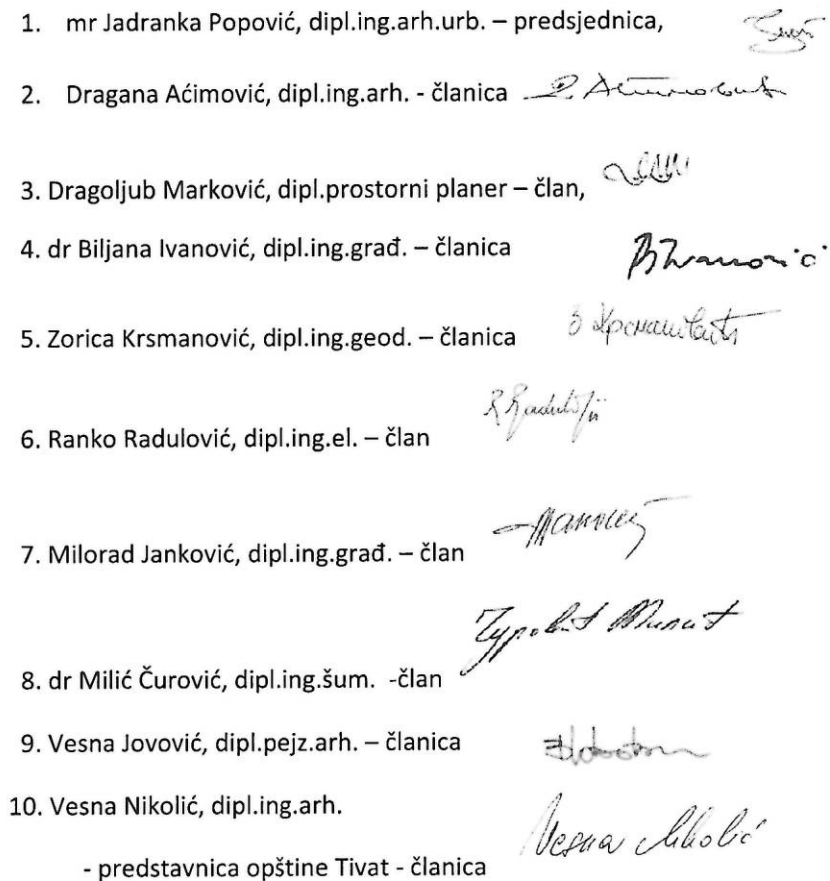 1. mr Jadranka Popović, dipl.ing.arh.urb. – predsjednica,
2. Dragana Aćimović, dipl.ing.arh. - članica
3. Dragoljub Marković, dipl.prostorni planer – član,
4. dr Biljana Ivanović, dipl.ing.građ. – članica BIvanović
5. Zorica Krsmanović, dipl.ing.geod. – članica
6. Ranko Radulović, dipl.ing.el. – član
7. Milorad Janković, dipl.ing.građ. – član
8. dr Milić Čurović, dipl.ing.šum. -član
9. Vesna Jovović, dipl.pejz.arh. – članica
10. Vesna Nikolić, dipl.ing.arh.
- predstavnica opštine Tivat - članica Vesna Nikolić